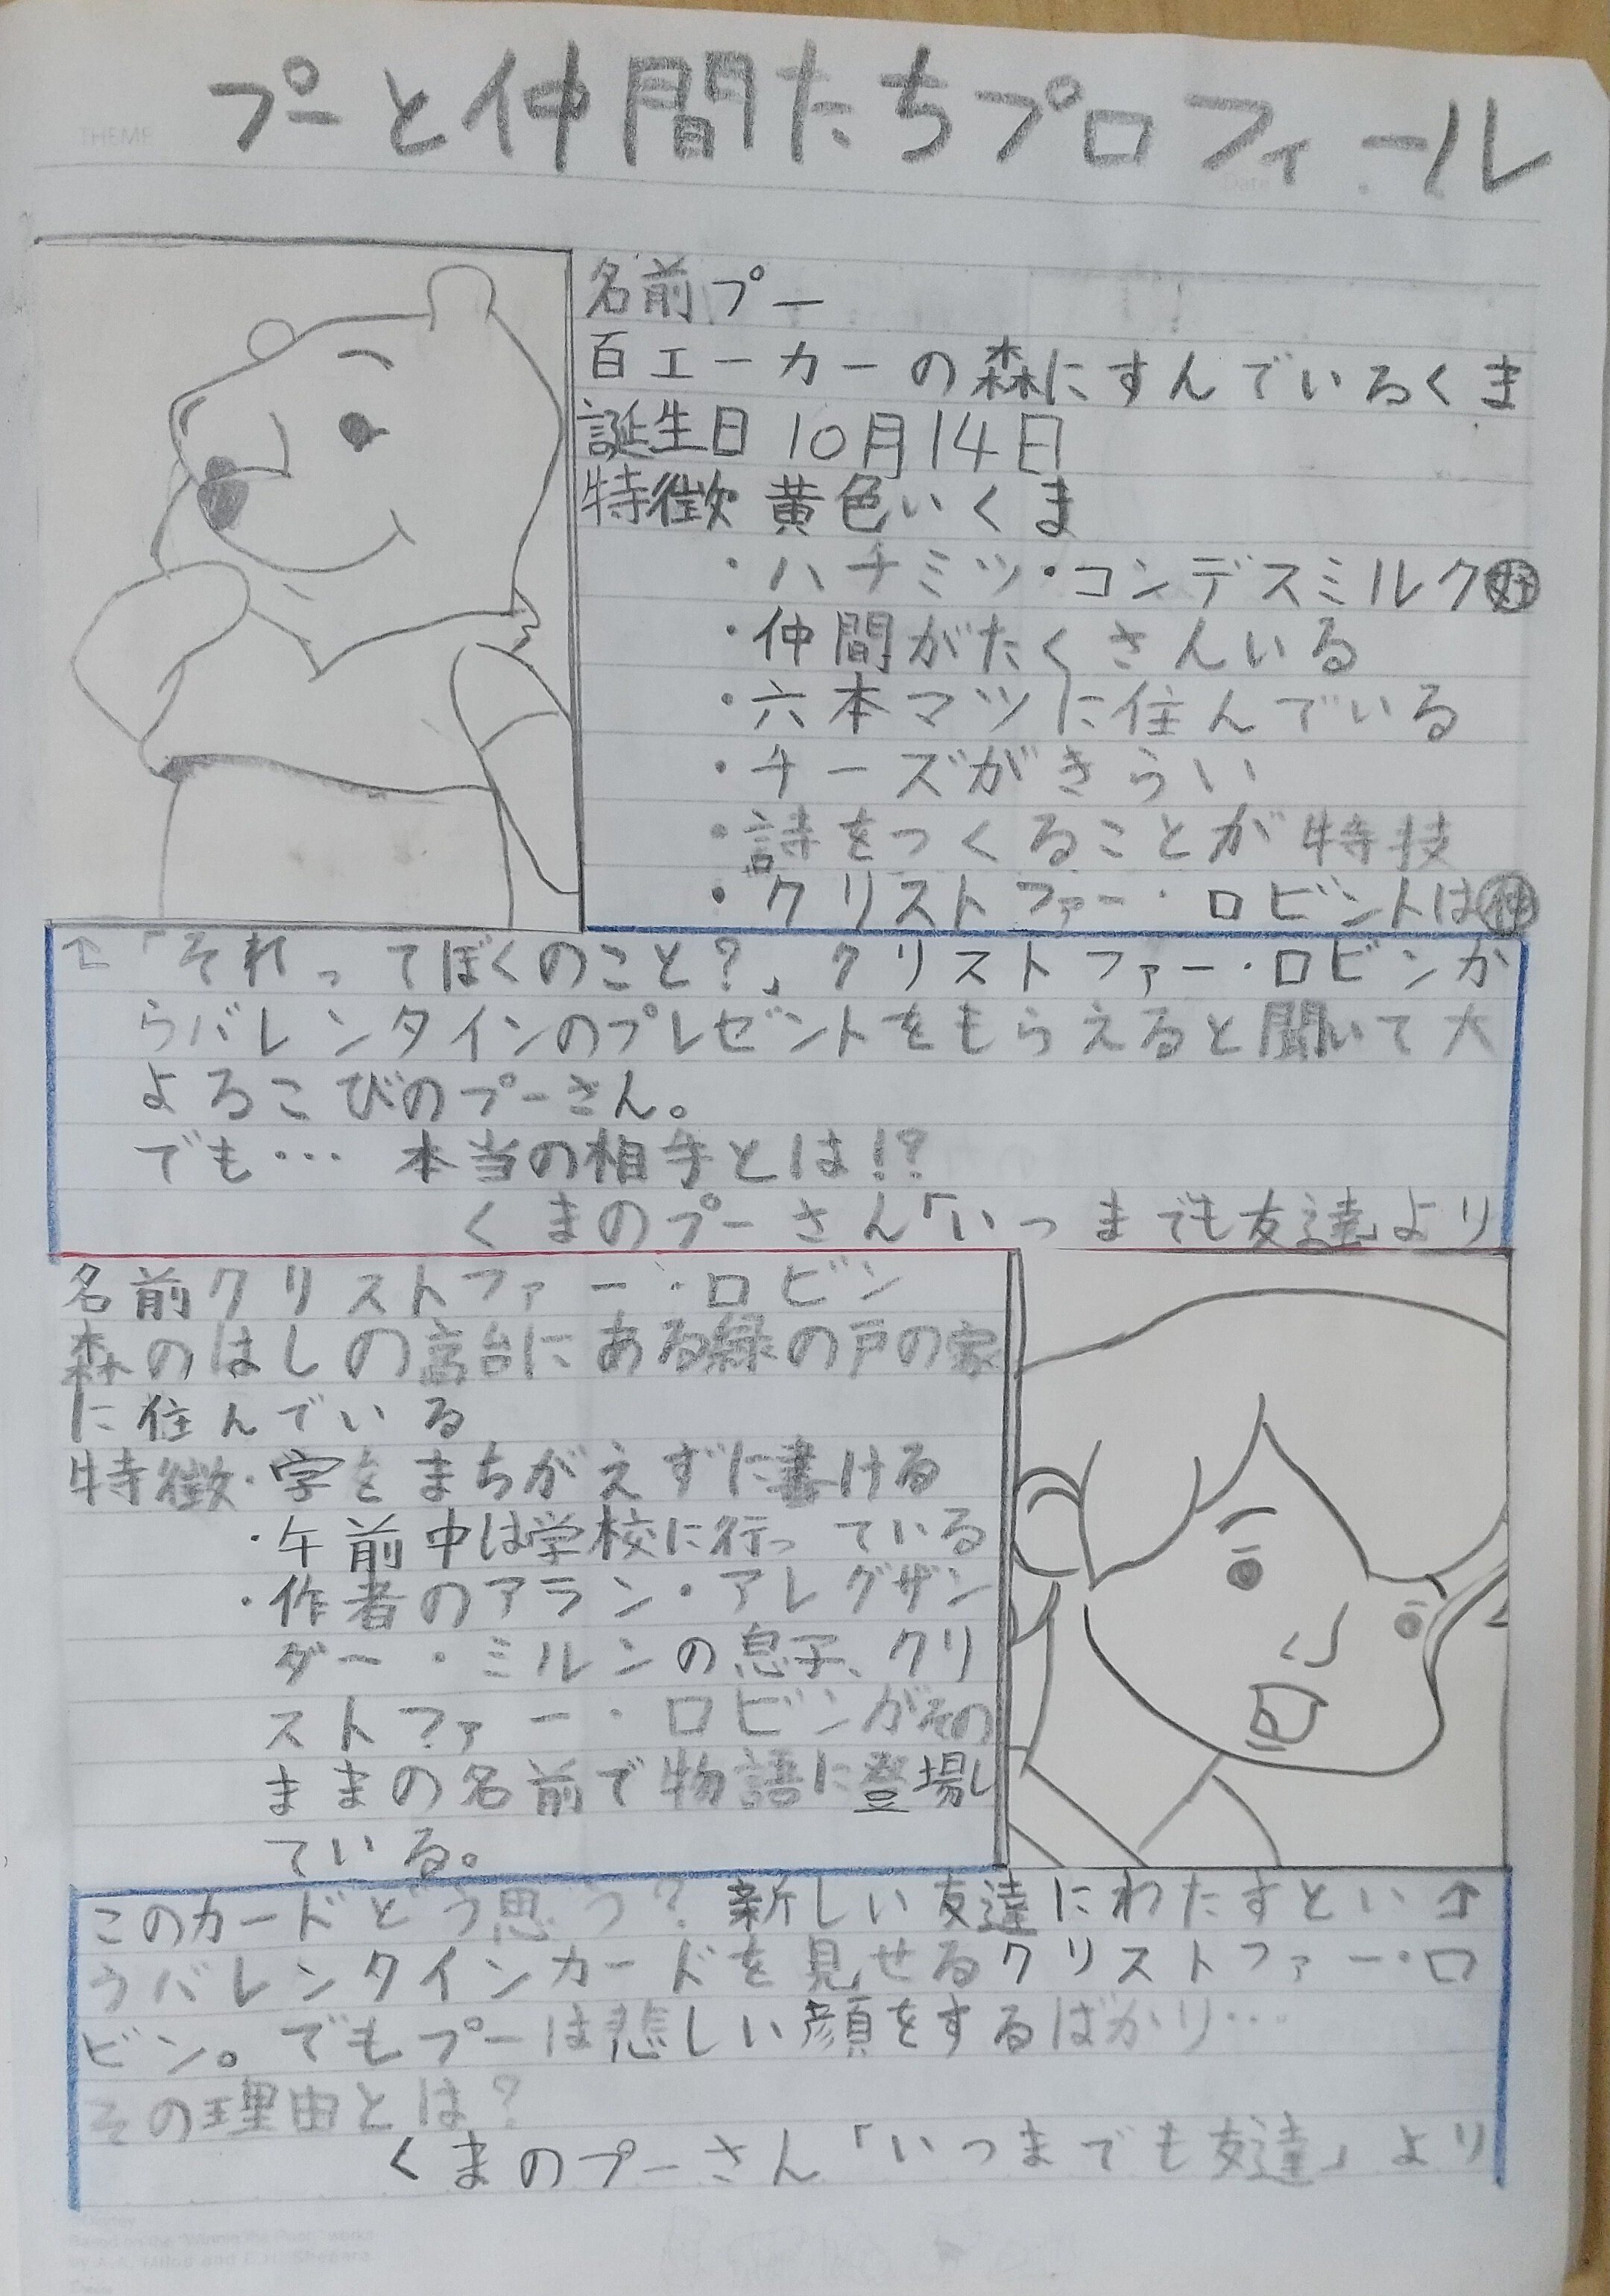 プーと仲間たちプロフィール
THEME
名前プー
百エーカーの森にすんでいるくま
誕生日 10月14日
特徴 黄色いくま
・ハチミツ・コンデスミルク好
・仲間がたくさんいる
・六本マツに住んでいる
・チーズがきらい
・詩をつくることが特技
・クリストファー・ロビントは仲
↑「それってぼくのこと?」クリストファー・ロビンか
らバレンタインのプレゼントをもらえると聞いて大
よろこびのプーさん。
でも… 本当の相手とは!?
くまのプーさん「いつまでも友達より
名前クリストファー・ロビン
森のはしの高台にある緑の戸の家
に住んでいる
特徴・字をまちがえずに書ける
・午前中は学校に行っている
・作者のアラン・アレグザン
ダー・ミルンの息子、クリ
ストファー・ロビンがその
ままの名前で物語に登場し
ている。
このカードどう思う?新しい友達にわたすとい↑
うバレンタインカードを見せるクリストファー・ロ
ビン。でもプーは悲しい顔をするばかり…
その理由とは?
くまのプーさん「いつまでも友達」より
Based on the "Winnie the Pooh" works
by A.A. Milne and E.H. Shepard